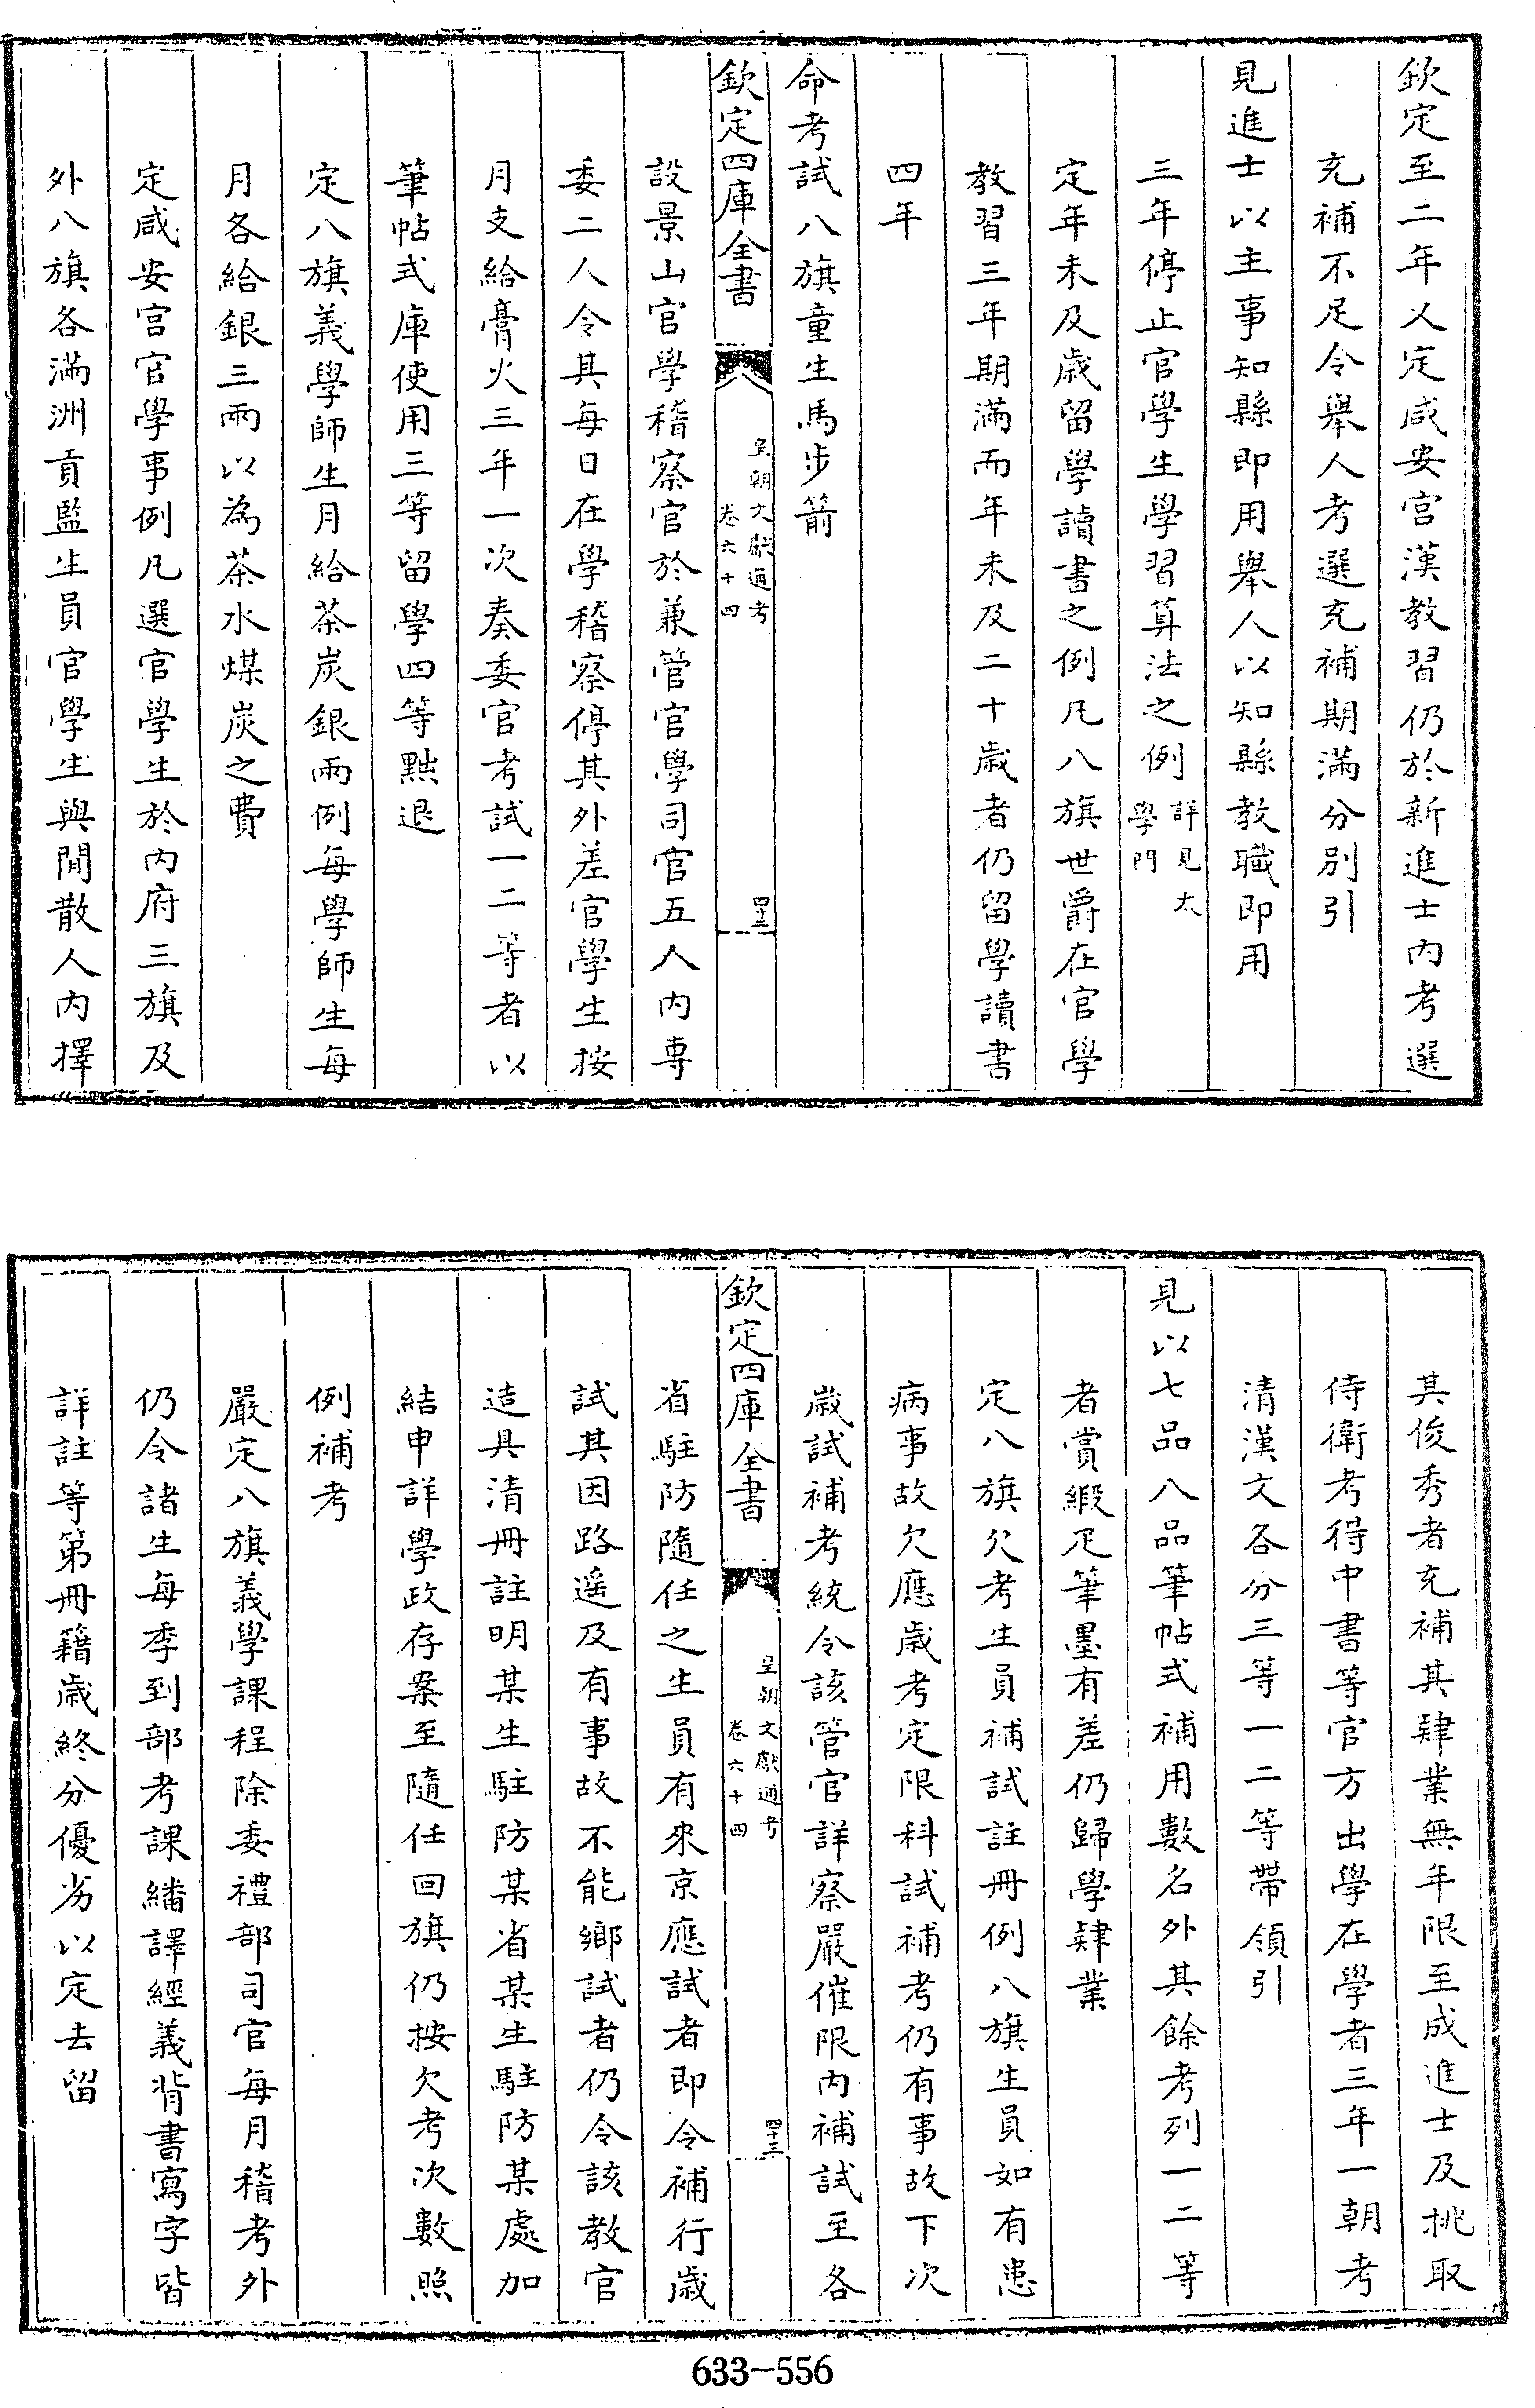 欽定至二年又定咸安宫漢教習仍於新進士内考選
充補不足令舉人考選充補期滿分别引
見進士以主事知縣即用舉人以知縣教職即用
三年停止官學生學習算法之例詳見太學門
定年未及歲留學讀書之例凡八旗世爵在官學
教習三年期滿而年未及二十歲者仍留學讀書
四年
命考試八旗童生馬步箭
欽定四庫全書
皇朝文獻通考
卷六十四
四十三
設景山官學稽察官於兼管官學司官五人内專
委二人令其每日在學稽察停其外差官學生按
月支給膏火三年一次奏委官考試一二等者以
筆帖式庫使用三等留學四等黜退
定八旗義學師生月給茶炭銀兩例每學師生每
月各給銀三兩以為茶水煤炭之費
定咸安宫官學事例凡選官學生於内府三旗及
外八旗各滿洲貢監生員官學生與閒散人内擇
其俊秀者充補其肄業無年限至成進士及挑取
侍衛考得中書等官方出學在學者三年一朝考
清漢文各分三等一二等帶領引
見以七品八品筆帖式補用數名外其餘考列一二等
者賞緞疋筆墨有差仍歸學肄業
定八旗欠考生員補試註冊例八旗生員如有患
病事故欠應歲考定限科試補考仍有事故下次
歲試補考統令該管官詳察嚴催限内補試至各
欽定四庫全書
皇朝文獻通考
卷六十四
四十三
省駐防隨任之生員有來京應試者即令補行歲
試其因路遥及有事故不能鄉試者仍令該教官
造具清冊註明某生駐防某省某生駐防某處加
結申詳學政存案至隨任回旗仍按欠考次數照
例補考
嚴定八旗義學課程除委禮部司官每月稽考外
仍令諸生每季到部考課繙譯經義背書寫字皆
詳註等第冊籍歲終分優劣以定去留
633-556